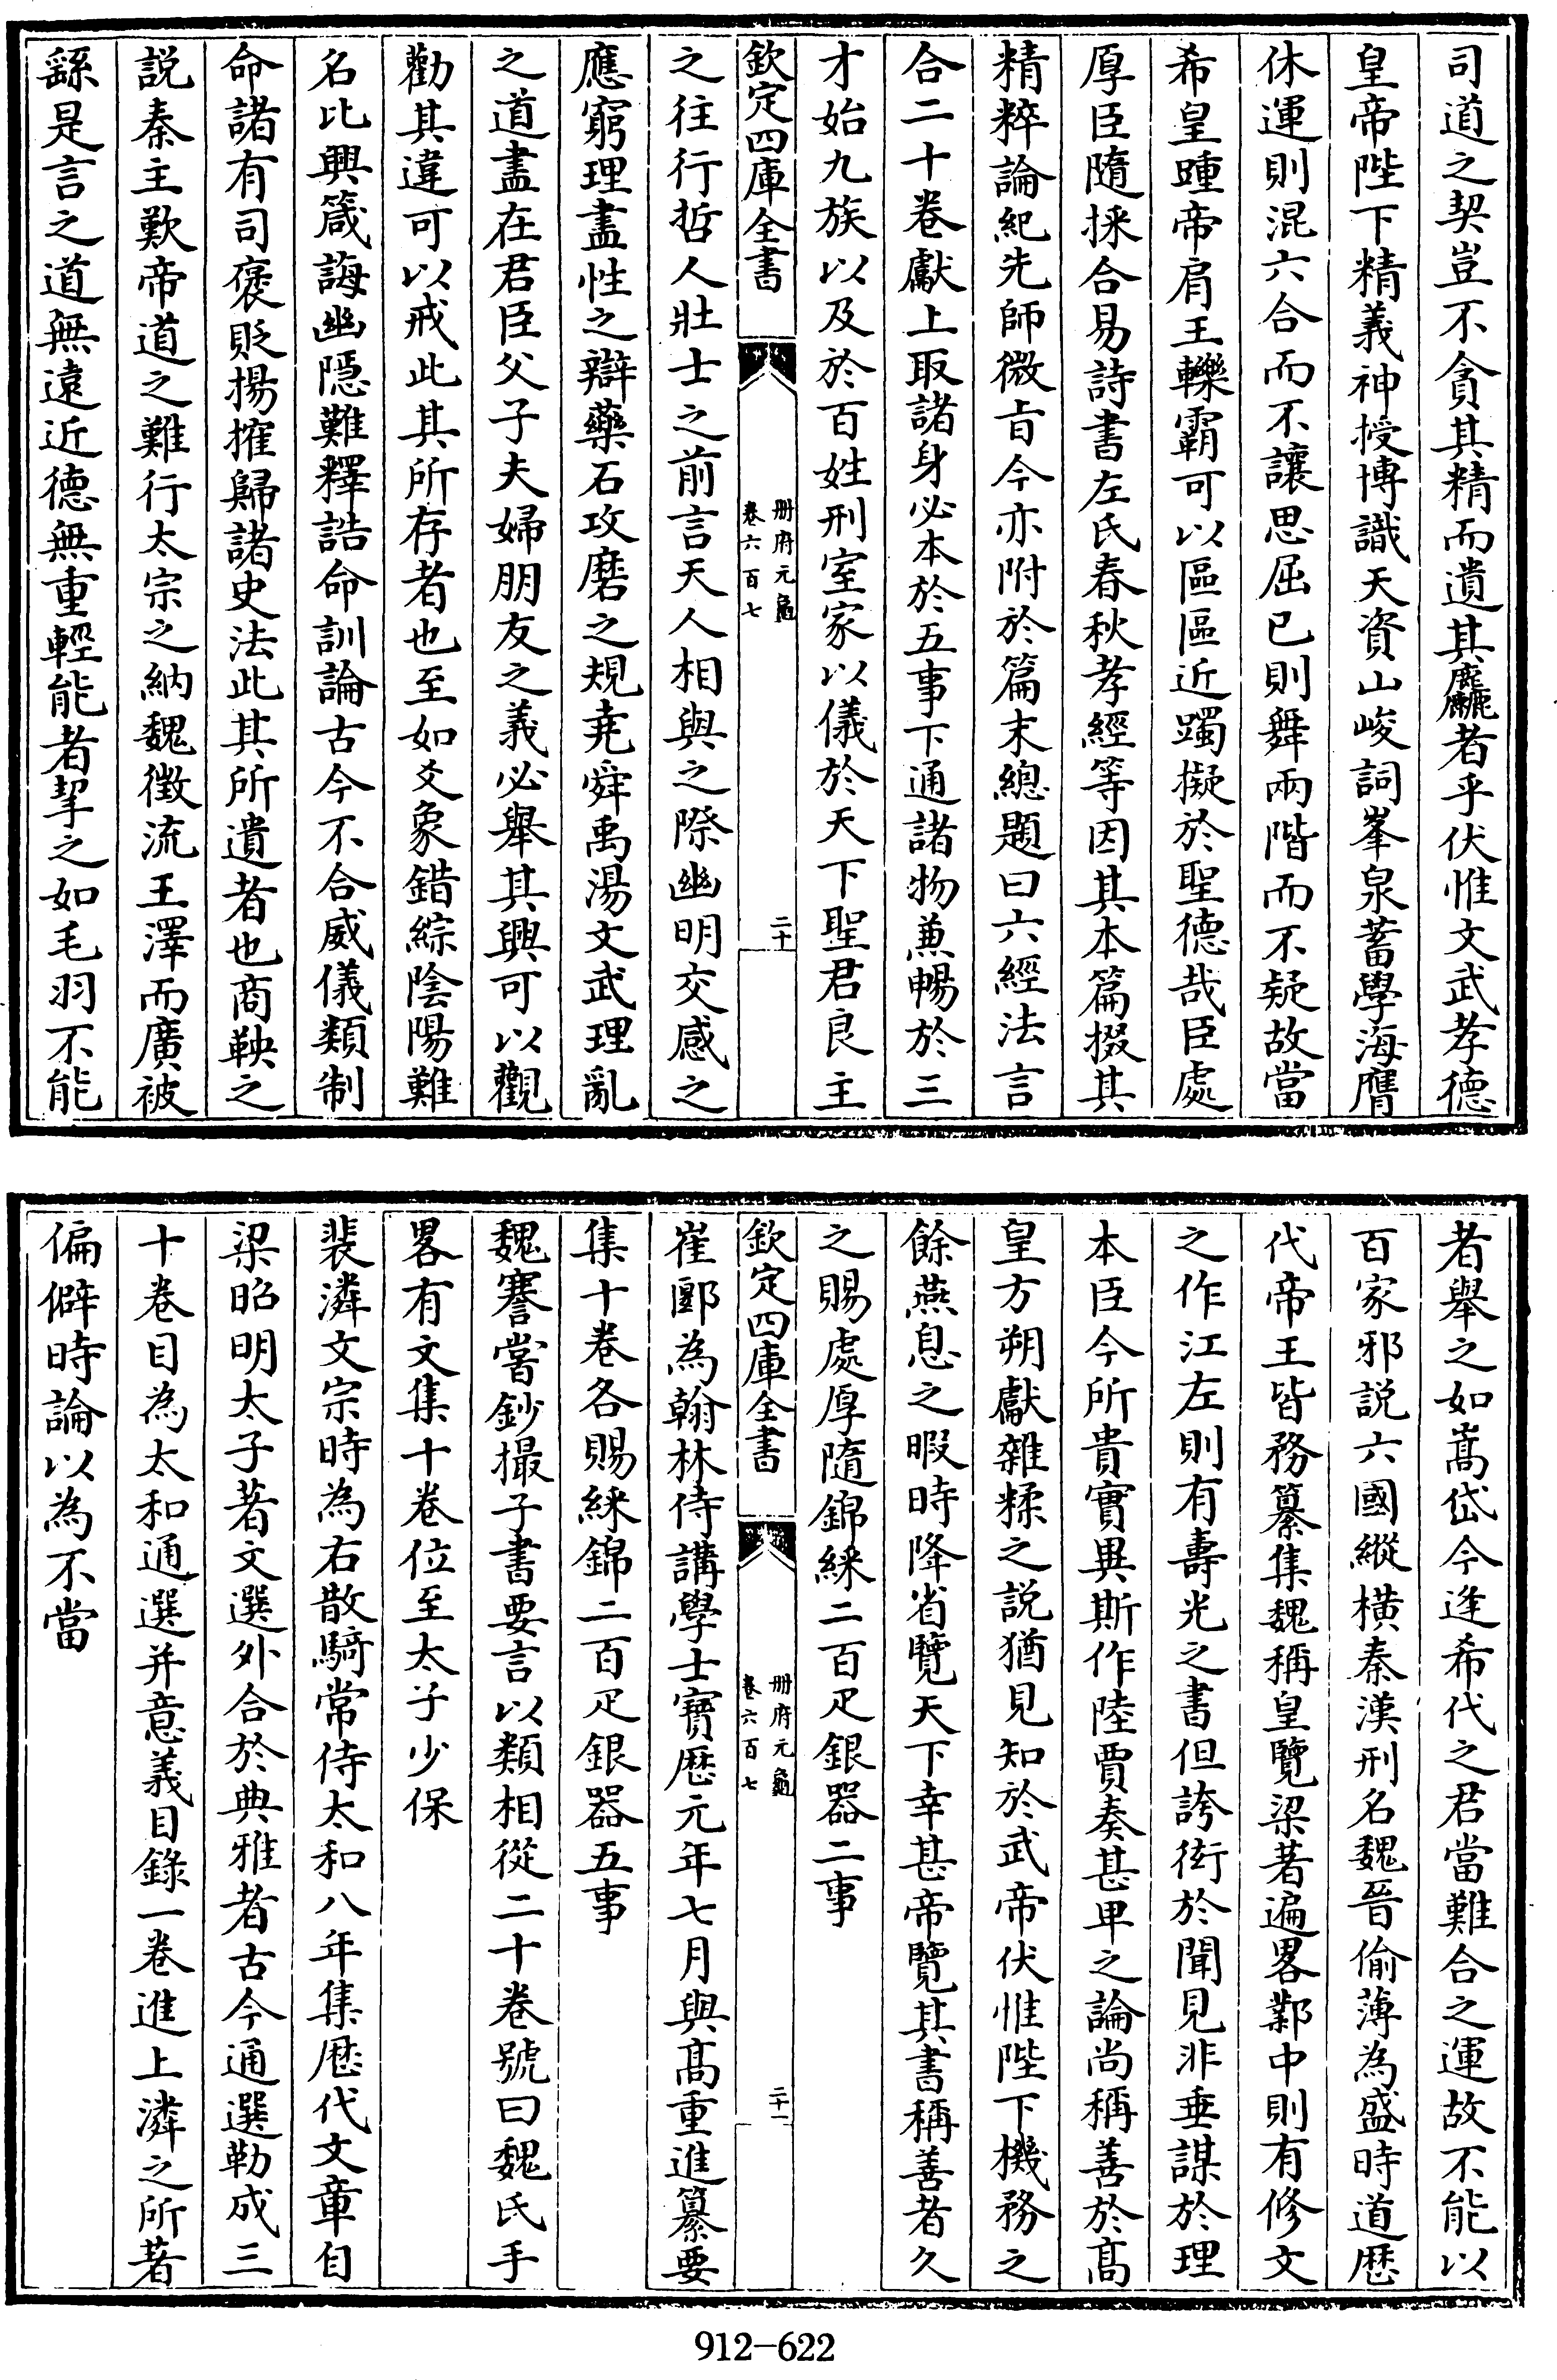 司道之契豈不貪其精而遺其麤者乎伏惟文武孝德
皇帝陛下精義神授博識天資山峻詞峯泉蓄學海膺
休運則混六合而不讓思屈已則舞兩階而不疑故當
希皇踵帝肩王轢霸可以區區近躅擬於聖德哉臣處
厚臣隨採合易詩書左氏春秋孝經等因其本篇掇其
精粹論紀先師微旨今亦附於篇末總題曰六經法言
合二十卷獻上取諸身必本於五事下通諸物兼暢於三
才始九族以及於百姓刑室家以儀於天下聖君良主
欽定四庫全書
册府元龜
卷六百七
二十
之往行哲人壯士之前言天人相與之際幽明交感之
應窮理盡性之辯藥石攻磨之規堯舜禹湯文武理亂
之道盡在君臣父子夫婦朋友之義必舉其興可以觀
勸其違可以戒此其所存者也至如爻象錯綜陰陽難
名比興箴誨幽隱難釋誥命訓論古今不合威儀類制
命諸有司褒貶揚搉歸諸史法此其所遺者也商鞅之
説秦主歎帝道之難行太宗之納魏徵流王澤而廣被
繇是言之道無遠近德無重輕能者挈之如毛羽不能
者舉之如嵩岱今逢希代之君當難合之運故不能以
百家邪説六國縱横秦漢刑名魏晉偷薄為盛時道歴
代帝王皆務纂集魏稱皇覽梁著遍畧鄴中則有修文
之作江左則有壽光之書但誇衒於聞見非垂謀於理
本臣今所貴實異斯作陸賈奏甚卑之論尚稱善於髙
皇方朔獻雜糅之説猶見知於武帝伏惟陛下機務之
餘燕息之暇時降省覽天下幸甚帝覽其書稱善者久
之賜處厚隨錦綵二百疋銀器二事
欽定四庫全書
册府元龜
卷六百七
二十一
崔郾為翰林侍講學士寳歴元年七月與髙重進纂要
集十卷各賜綵錦二百疋銀器五事
魏謩嘗鈔撮子書要言以類相從二十卷號曰魏氏手
畧有文集十卷位至太子少保
裴潾文宗時為右散騎常侍太和八年集歴代文章自
梁昭明太子著文選外合於典雅者古今通選勒成三
十卷目為太和通選并意義目錄一卷進上潾之所著
偏僻時論以為不當
912-622